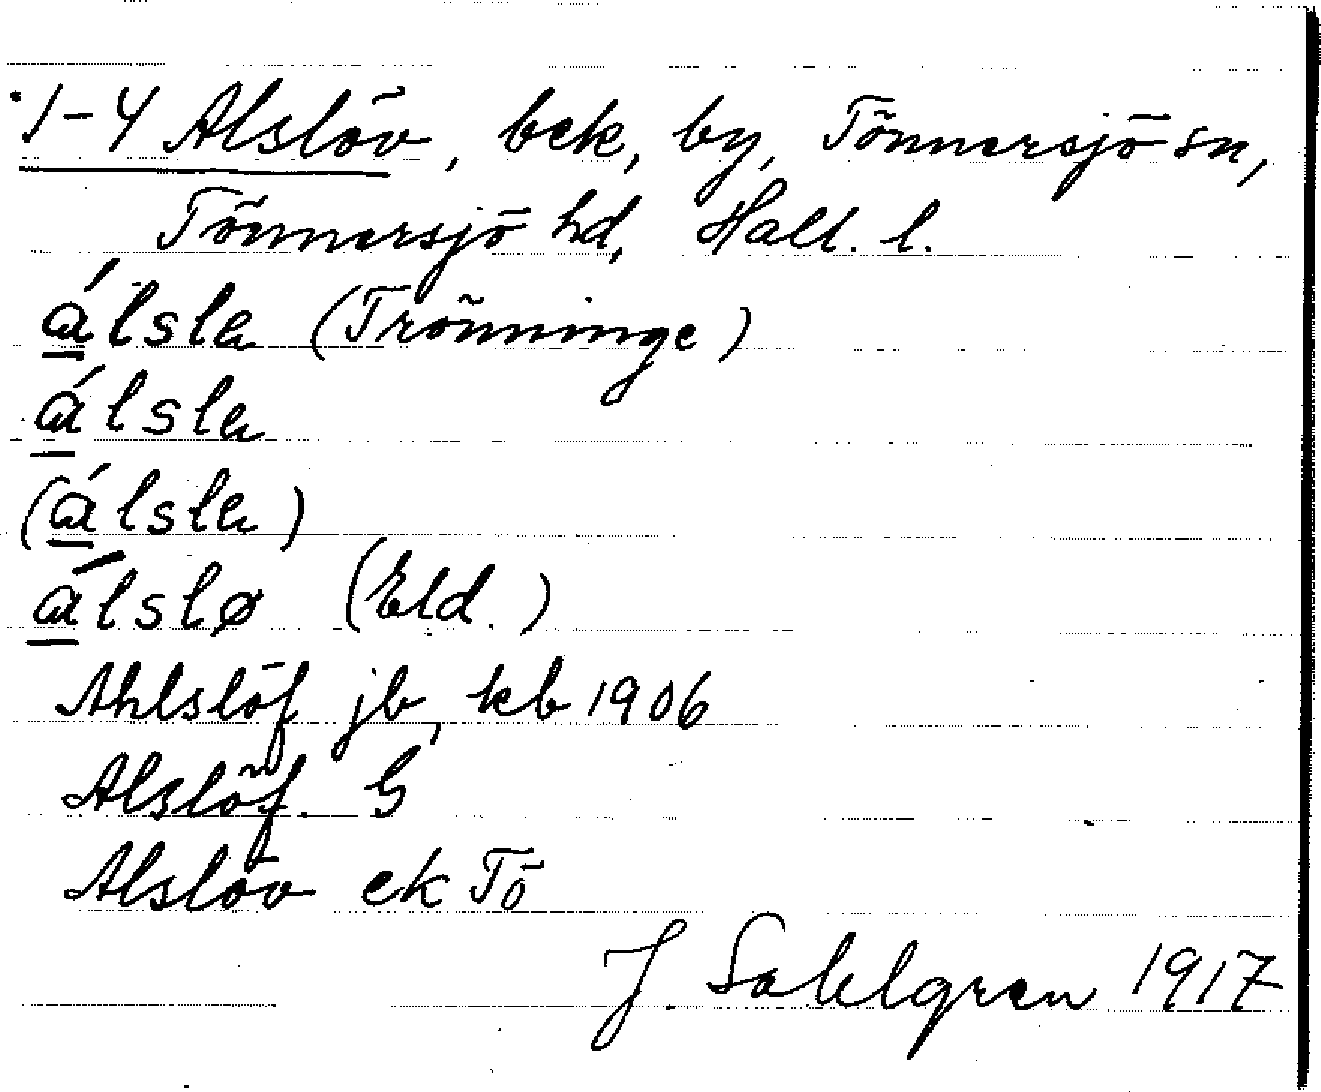 1-4 Alslöv, bek, by, Tönnersjö sn,
Tönnersjö hd, Hall. l.
álsla (Trönninge)
álsla
(álsla)
álslø (Eld.)
Ahlslöf jb, kb 1906
Alslöf G
Alslöv ek Tö
J. Sahlgren 1917